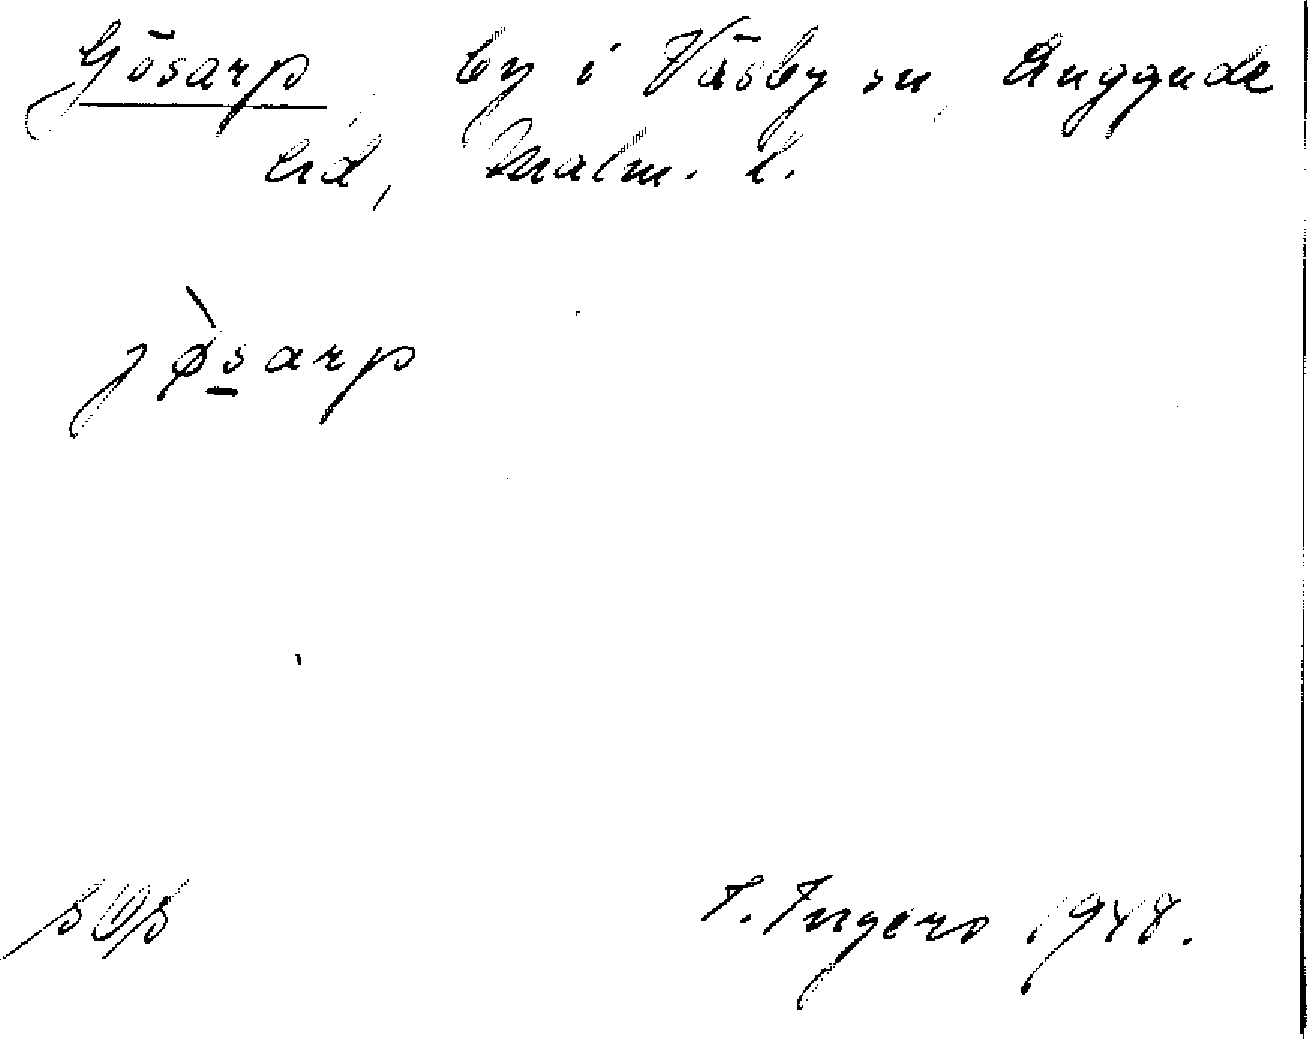 Gösarp, by i Väsby sn, Luggude
hd, Malm. l.
jø̀s̲arp
I. Ingers 1948.